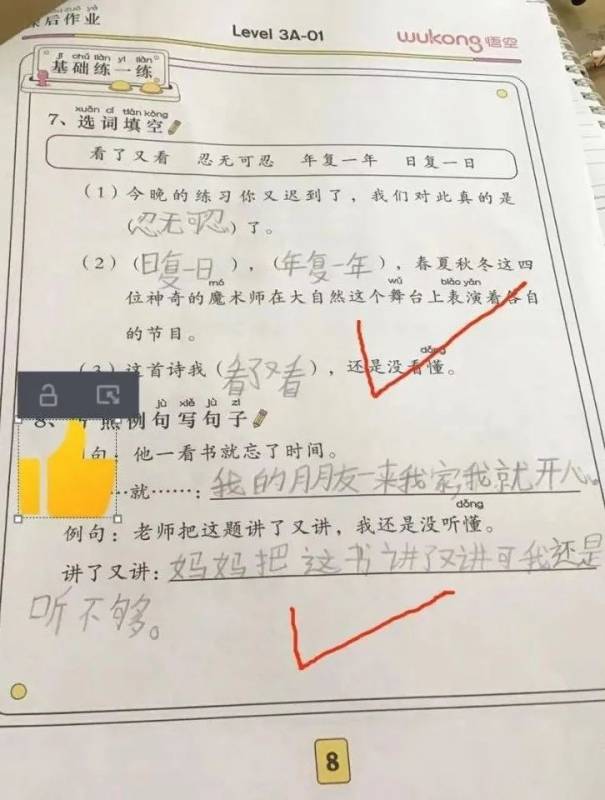 课后作业
Level 3A-01
wukong 悟空
jī chǔ liàn yí liàn
基础练一练
xuǎn cí tián kòng
7、选词填空
看了又看 忍无可忍 年复一年 日复一日
（1）今晚的练习你又迟到了，我们对此真的是
（忍无可忍）了。
（2）（日复一日），（年复一年），春夏秋冬这四
mó wǔ biǎo yǎn
位神奇的魔术师在大自然这个舞台上表演着各自
的节目。
dǒng
（3）这首诗我（看了又看），还是没看懂。
jù xiě jù zi
8、 照例句写句子
句：他一看书就忘了时间。
…就……：我的朋友一来我家，我就开心。
dǒng
例句：老师把这题讲了又讲，我还是没听懂。
讲了又讲：妈妈把这书讲了又讲可我还是
听不够。
8